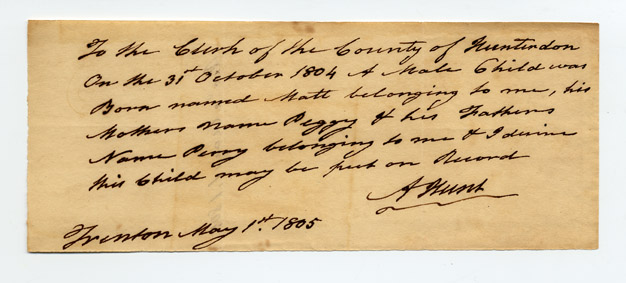 To the Clerk of the County of Hunterdon
On the 31st October 1804 A Male Child was
Born named Matt belonging to me, his
Mothers name Peggy & his Fathers
Name Perry belonging to me & I desire
this Child may be put on Record
A Hunt
Trenton May 1st. 1805